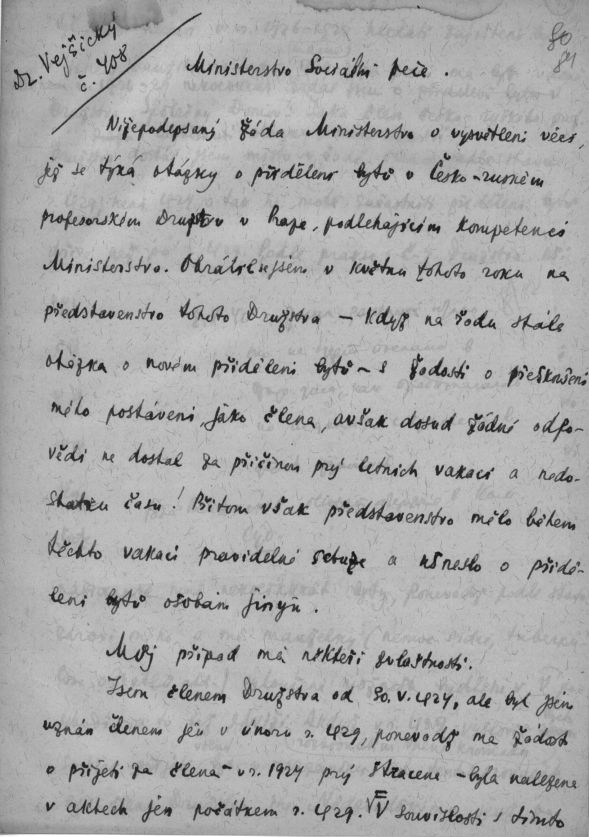 Dr. Vejšický
č. 408
80
81
Ministerstvo Sociální péče.
Nížepodepsaný žádá Ministerstvo o vysvětlení věci,
jež se týká otázky o přidělení bytů v Česko-ruském
profesorském Družstvu v Praze, podléhajícím kompetenci
Ministerstva. Obrátil jsem v květnu tohoto roku na
představenstvo tohoto Družstva – když na řadu stála
otázka o novém přidělení bytů – s žádostí o přezkoušení
mého postavení jako člena, avšak dosud žádné odpo-
vědi ne dostal za příčinou prý letních vakací a nedo-
statku času! Přitom však představenstvo mělo během
těchto vakací pravidelné schuze a usneslo o přidě-
lení bytů osobám jiným.
Můj případ má někteří zvlaštnosti.
Jsem členem Družstva od 30. V. 1927, ale byl jsem
uznán členem jen v únoru r. 1929, poněvadž má žádost
o přijetí za člena – v r. 1927 prý ztracena – byla nalezena
v aktech jen počátkem r. 1929. V souvislosti s tímto